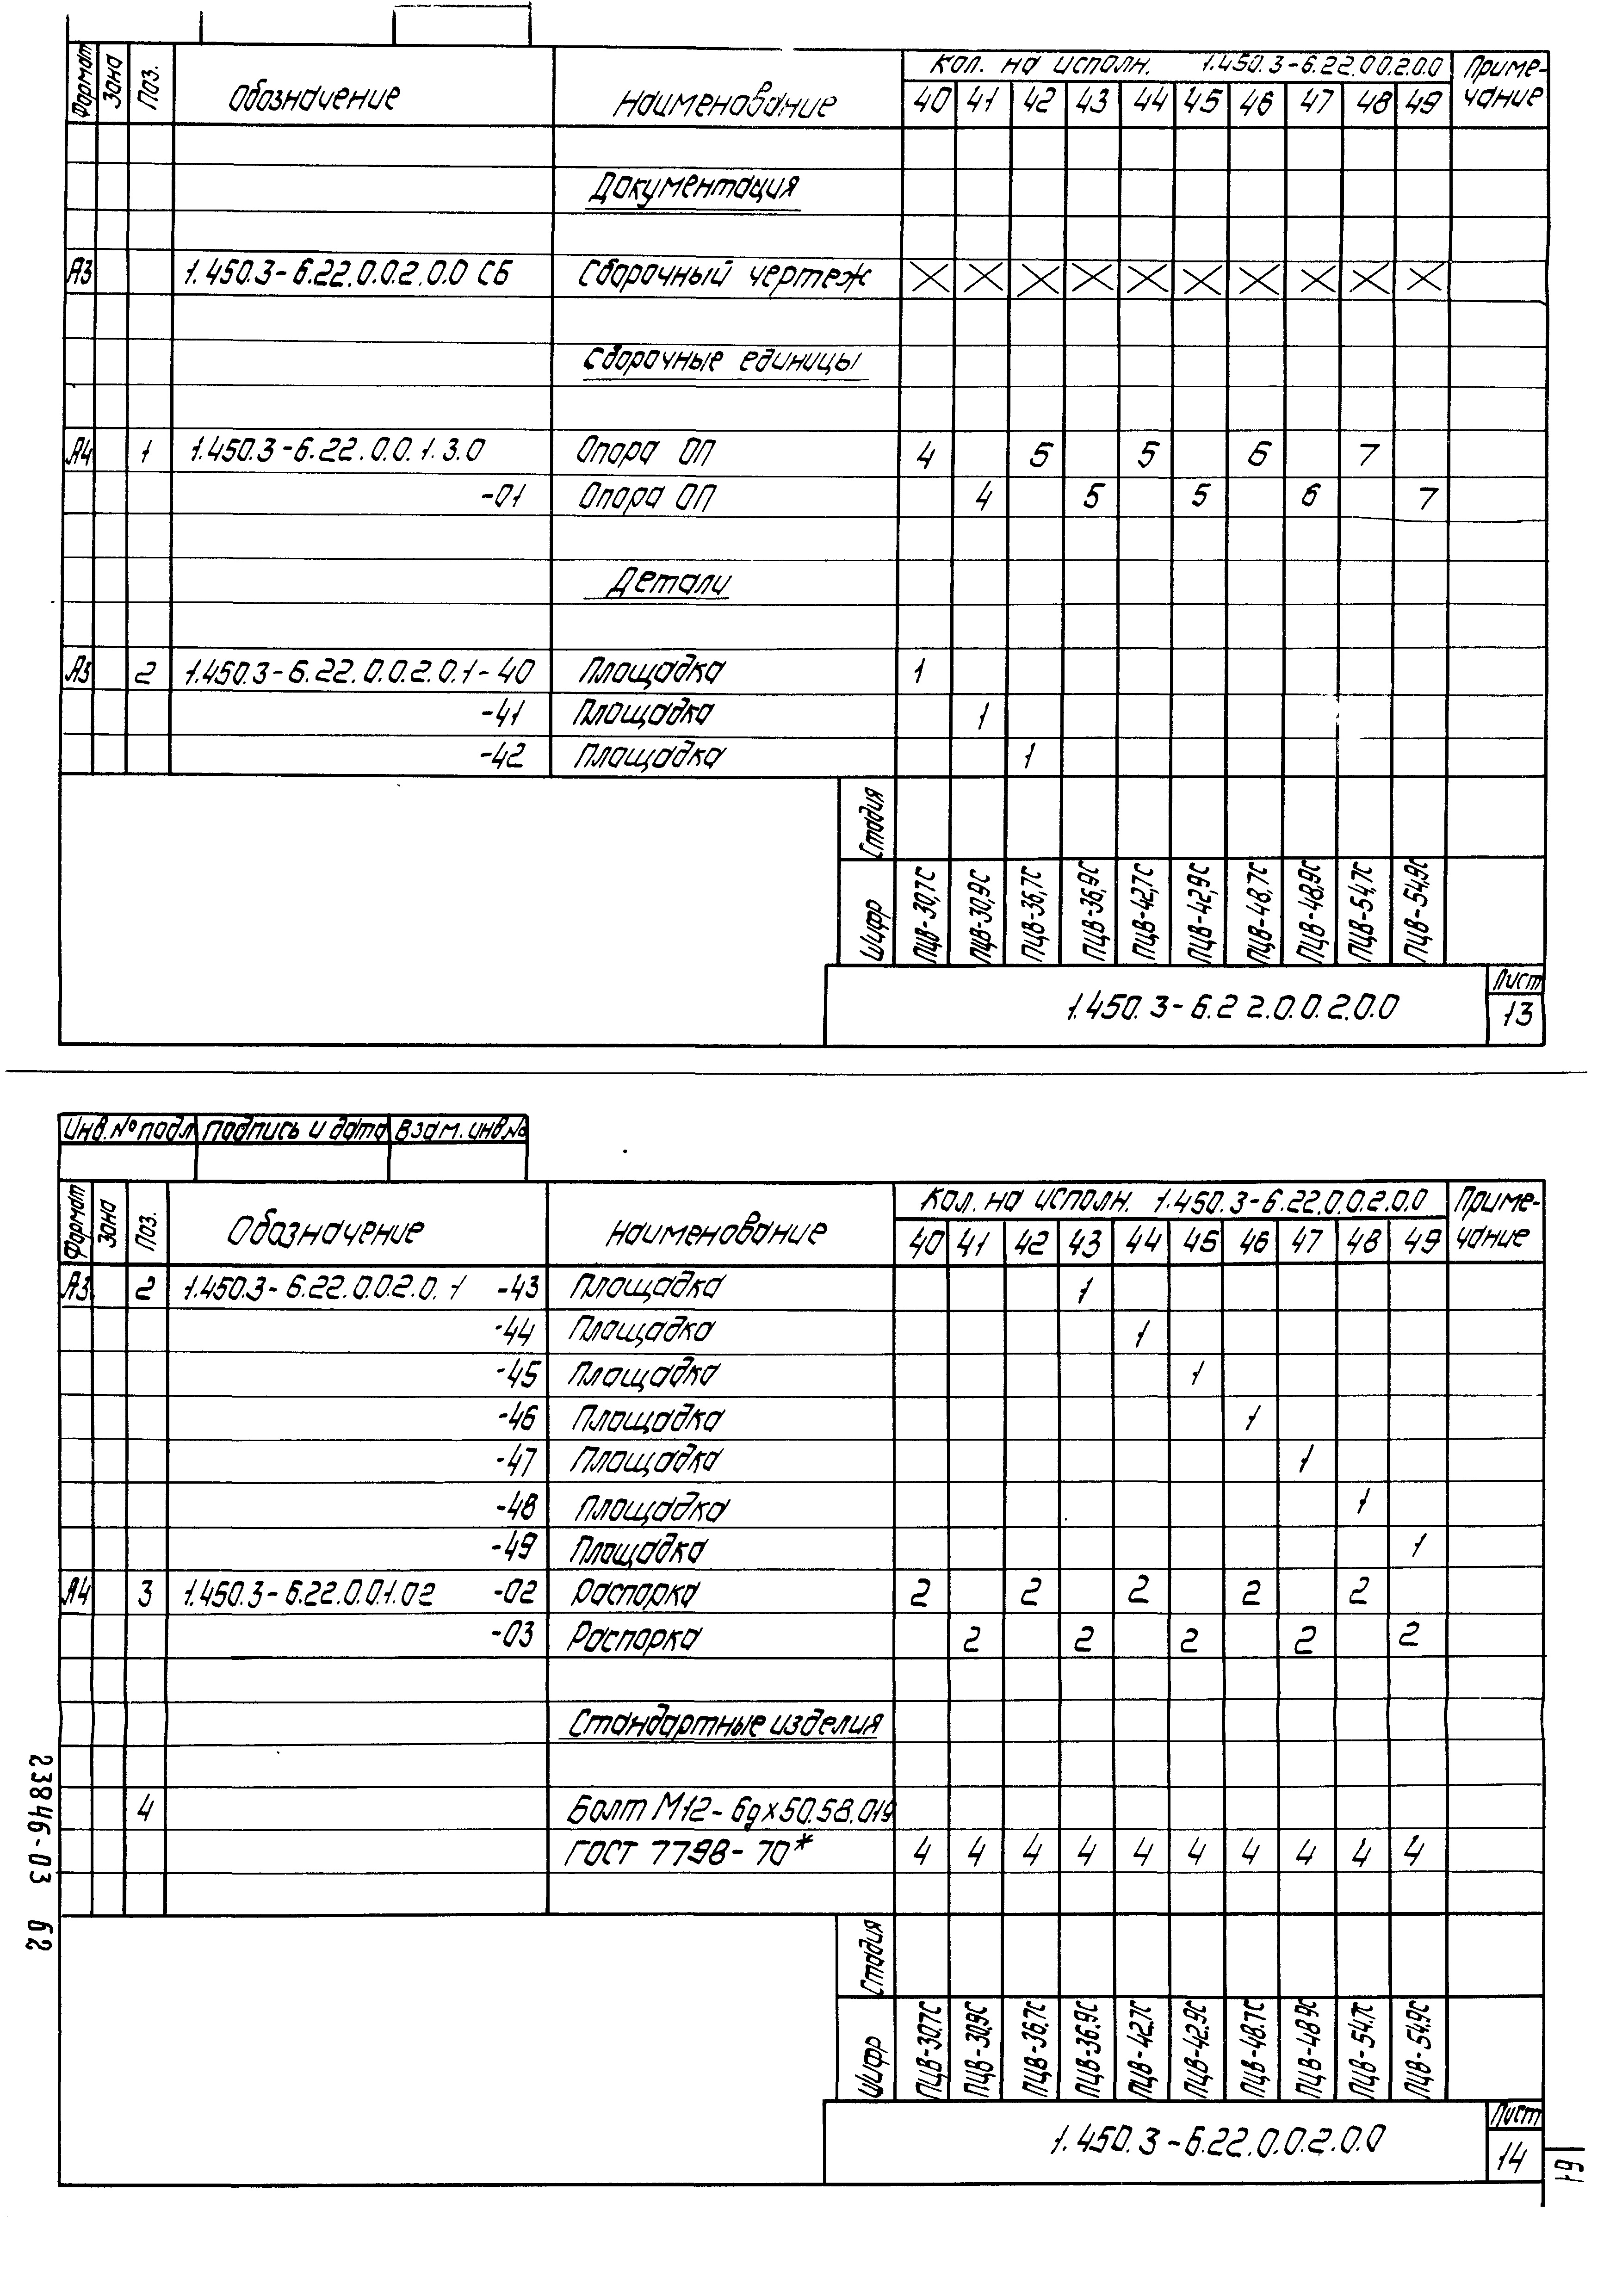 Формат Зона Поз. Обозначение Наименование Кол. на исполн. 1.450.3-6.22.0.0.2.0.0 Приме-
40 41 42 43 44 45 46 47 48 49 чание
Документация
А3 1.450.3-6.22.0.0.2.0.0 СБ Сборочный чертеж
Сборочные единицы
А4 1 1.450.3-6.22.0.0.1.3.0 Опора ОП 4 5 5 6 7
-01 Опора ОП 4 5 5 6 7
Детали
А3 2 1.450.3-6.22.0.0.2.0.1-40 Площадка 1
-41 Площадка 1
-42 Площадка 1
Стадия
Шифр ПЦВ-30,7С ПЦВ-30,9С ПЦВ-36,7С ПЦВ-36,9С ПЦВ-42,7С ПЦВ-42,9С ПЦВ-48,7С ПЦВ-48,9С ПЦВ-54,7С ПЦВ-54,9С
1.450.3-6.22.0.0.2.0.0
Лист
13
Инв. № подл Подпись и дата Взам. инв. №
Формат Зона Поз. Обозначение Наименование Кол. на исполн. 1.450.3-6.22.0.0.2.0.0 Приме-
40 41 42 43 44 45 46 47 48 49 чание
А3 2 1.450.3-6.22.0.0.2.0.1 -43 Площадка 1
-44 Площадка 1
-45 Площадка 1
-46 Площадка 1
-47 Площадка 1
-48 Площадка 1
-49 Площадка 1
А4 3 1.450.3-6.22.0.0.1.02 -02 Распорка 2 2 2 2 2
-03 Распорка 2 2 2 2 2
Стандартные изделия
4 Болт М12-6gх50.58.019
ГОСТ 7798-70* 4 4 4 4 4 4 4 4 4 4
Стадия
Шифр ПЦВ-30,7С ПЦВ-30,9С ПЦВ-36,7С ПЦВ-36,9С ПЦВ-42,7С ПЦВ-42,9С ПЦВ-48,7С ПЦВ-48,9С ПЦВ-54,7С ПЦВ-54,9С
1.450.3-6.22.0.0.2.0.0
Лист
14
23846-03 62
61